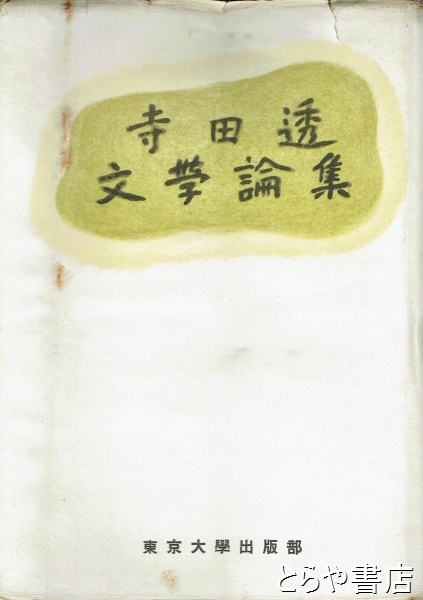 寺田透
文學論集
東京大學出版部
とらや書店